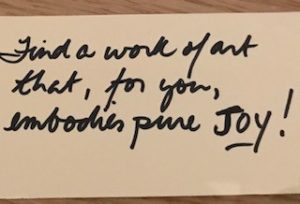 Find a work of art
that, for you,
embodies pure JOY!